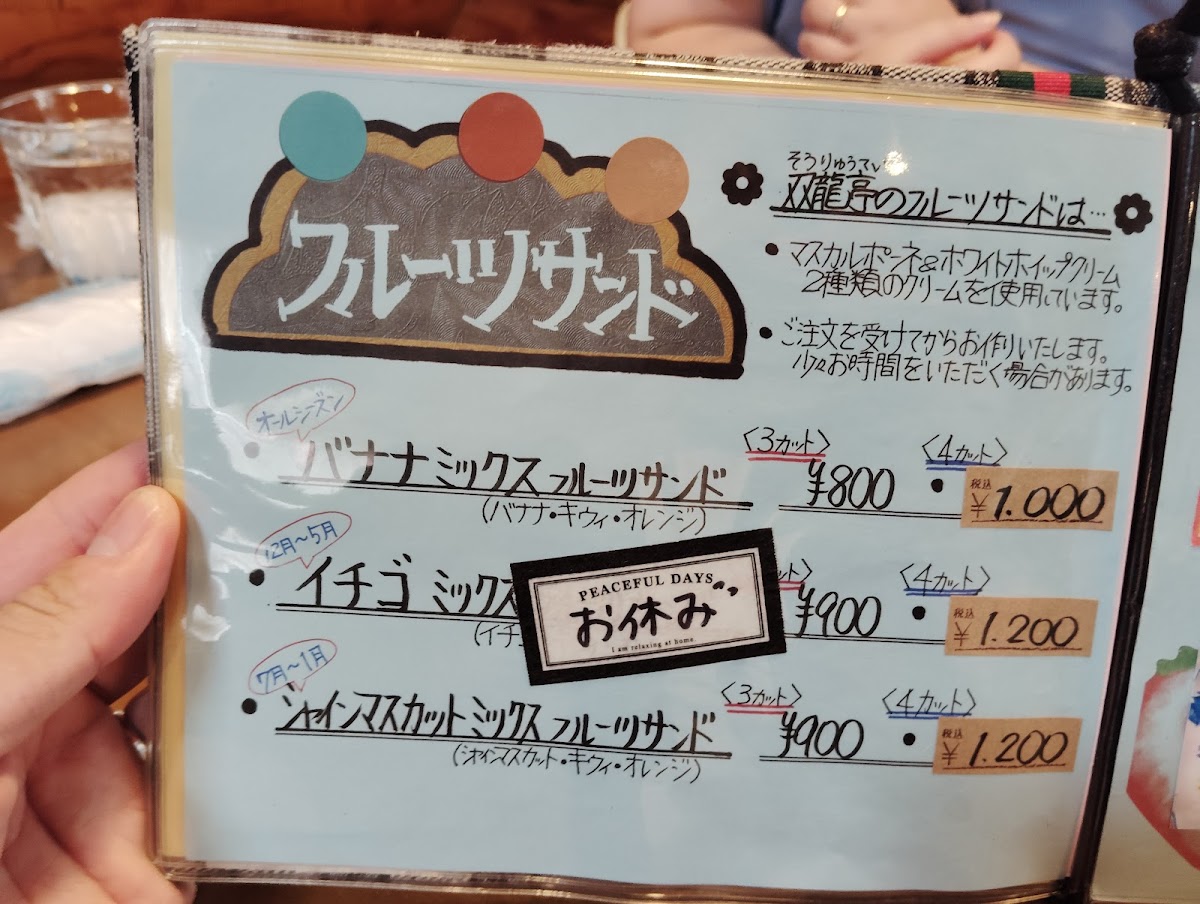 フルーツサンド
そうりゅうてい
双龍亭のフルーツサンドは…
• マスカルポーネ&ホワイトホイップクリーム
2種類のクリームを使用しています。
• ご注文を受けてからお作りいたします。
少々お時間をいただく場合があります。
オールシーズン
• バナナミックスフルーツサンド 〈3カット〉 ¥800 • 〈4カット〉 税込 ¥1.000
(バナナ・キウィ・オレンジ)
12月〜5月
• イチゴ ミックス ¥900 • 〈4カット〉 税込 ¥1.200
(イチ
PEACEFUL DAYS
お休み
I am relaxing at home.
7月〜1月
• シャインマスカットミックスフルーツサンド 〈3カット〉 ¥900 • 〈4カット〉 税込 ¥1.200
(シャインマスカット・キウィ・オレンジ)